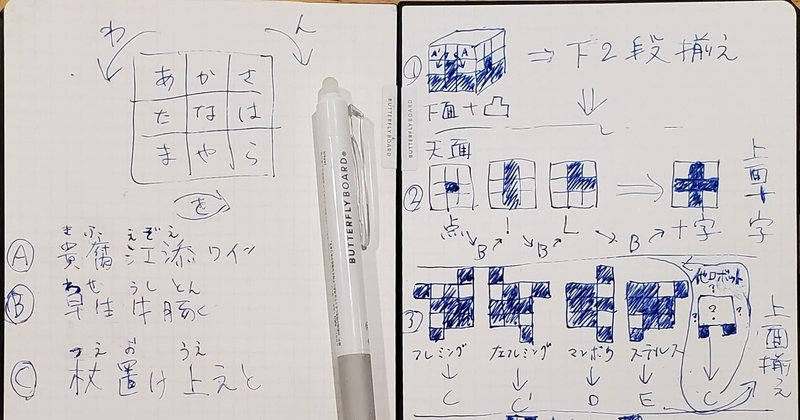 わ
ん
あ か さ
た な は
ま や ら
を
Ⓐ 貴腐江添ワイン
きふ えぞえ
Ⓑ 早生牛豚く
わせ うし とん
Ⓒ 杖置け上えと
つえ お うえ
BUTTERFLYBOARD®
BUTTERFLYBOARD
BUTTERFLYBOARD
① A' A ⇒ 下2段揃え
下面+凸
天面
② 点 I L 十字
B B B
上面十字
③ フレミング 左フレミング マンボウ ステルス 他ロボット
? ? ?
C C' D E C
上面揃え